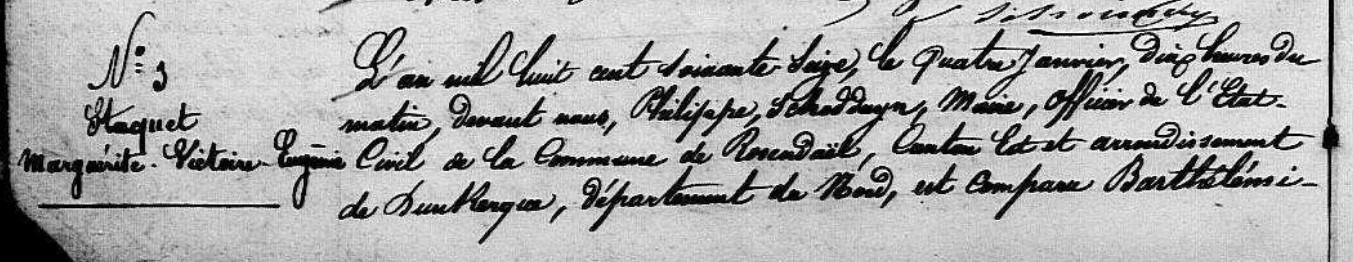 N° 3
Staquet
Marguérite-Victoire-Eugénie
L'an mil huit cent soixante-seize, le quatre Janvier, dix heures du
matin, devant nous, Philippe, Schadduyn, Maire, officier de l'Etat-
Civil de la Commune de Rosendaël, Canton Est et arrondissement
de Dunkerque, Département du Nord, est comparu Barthélémi-